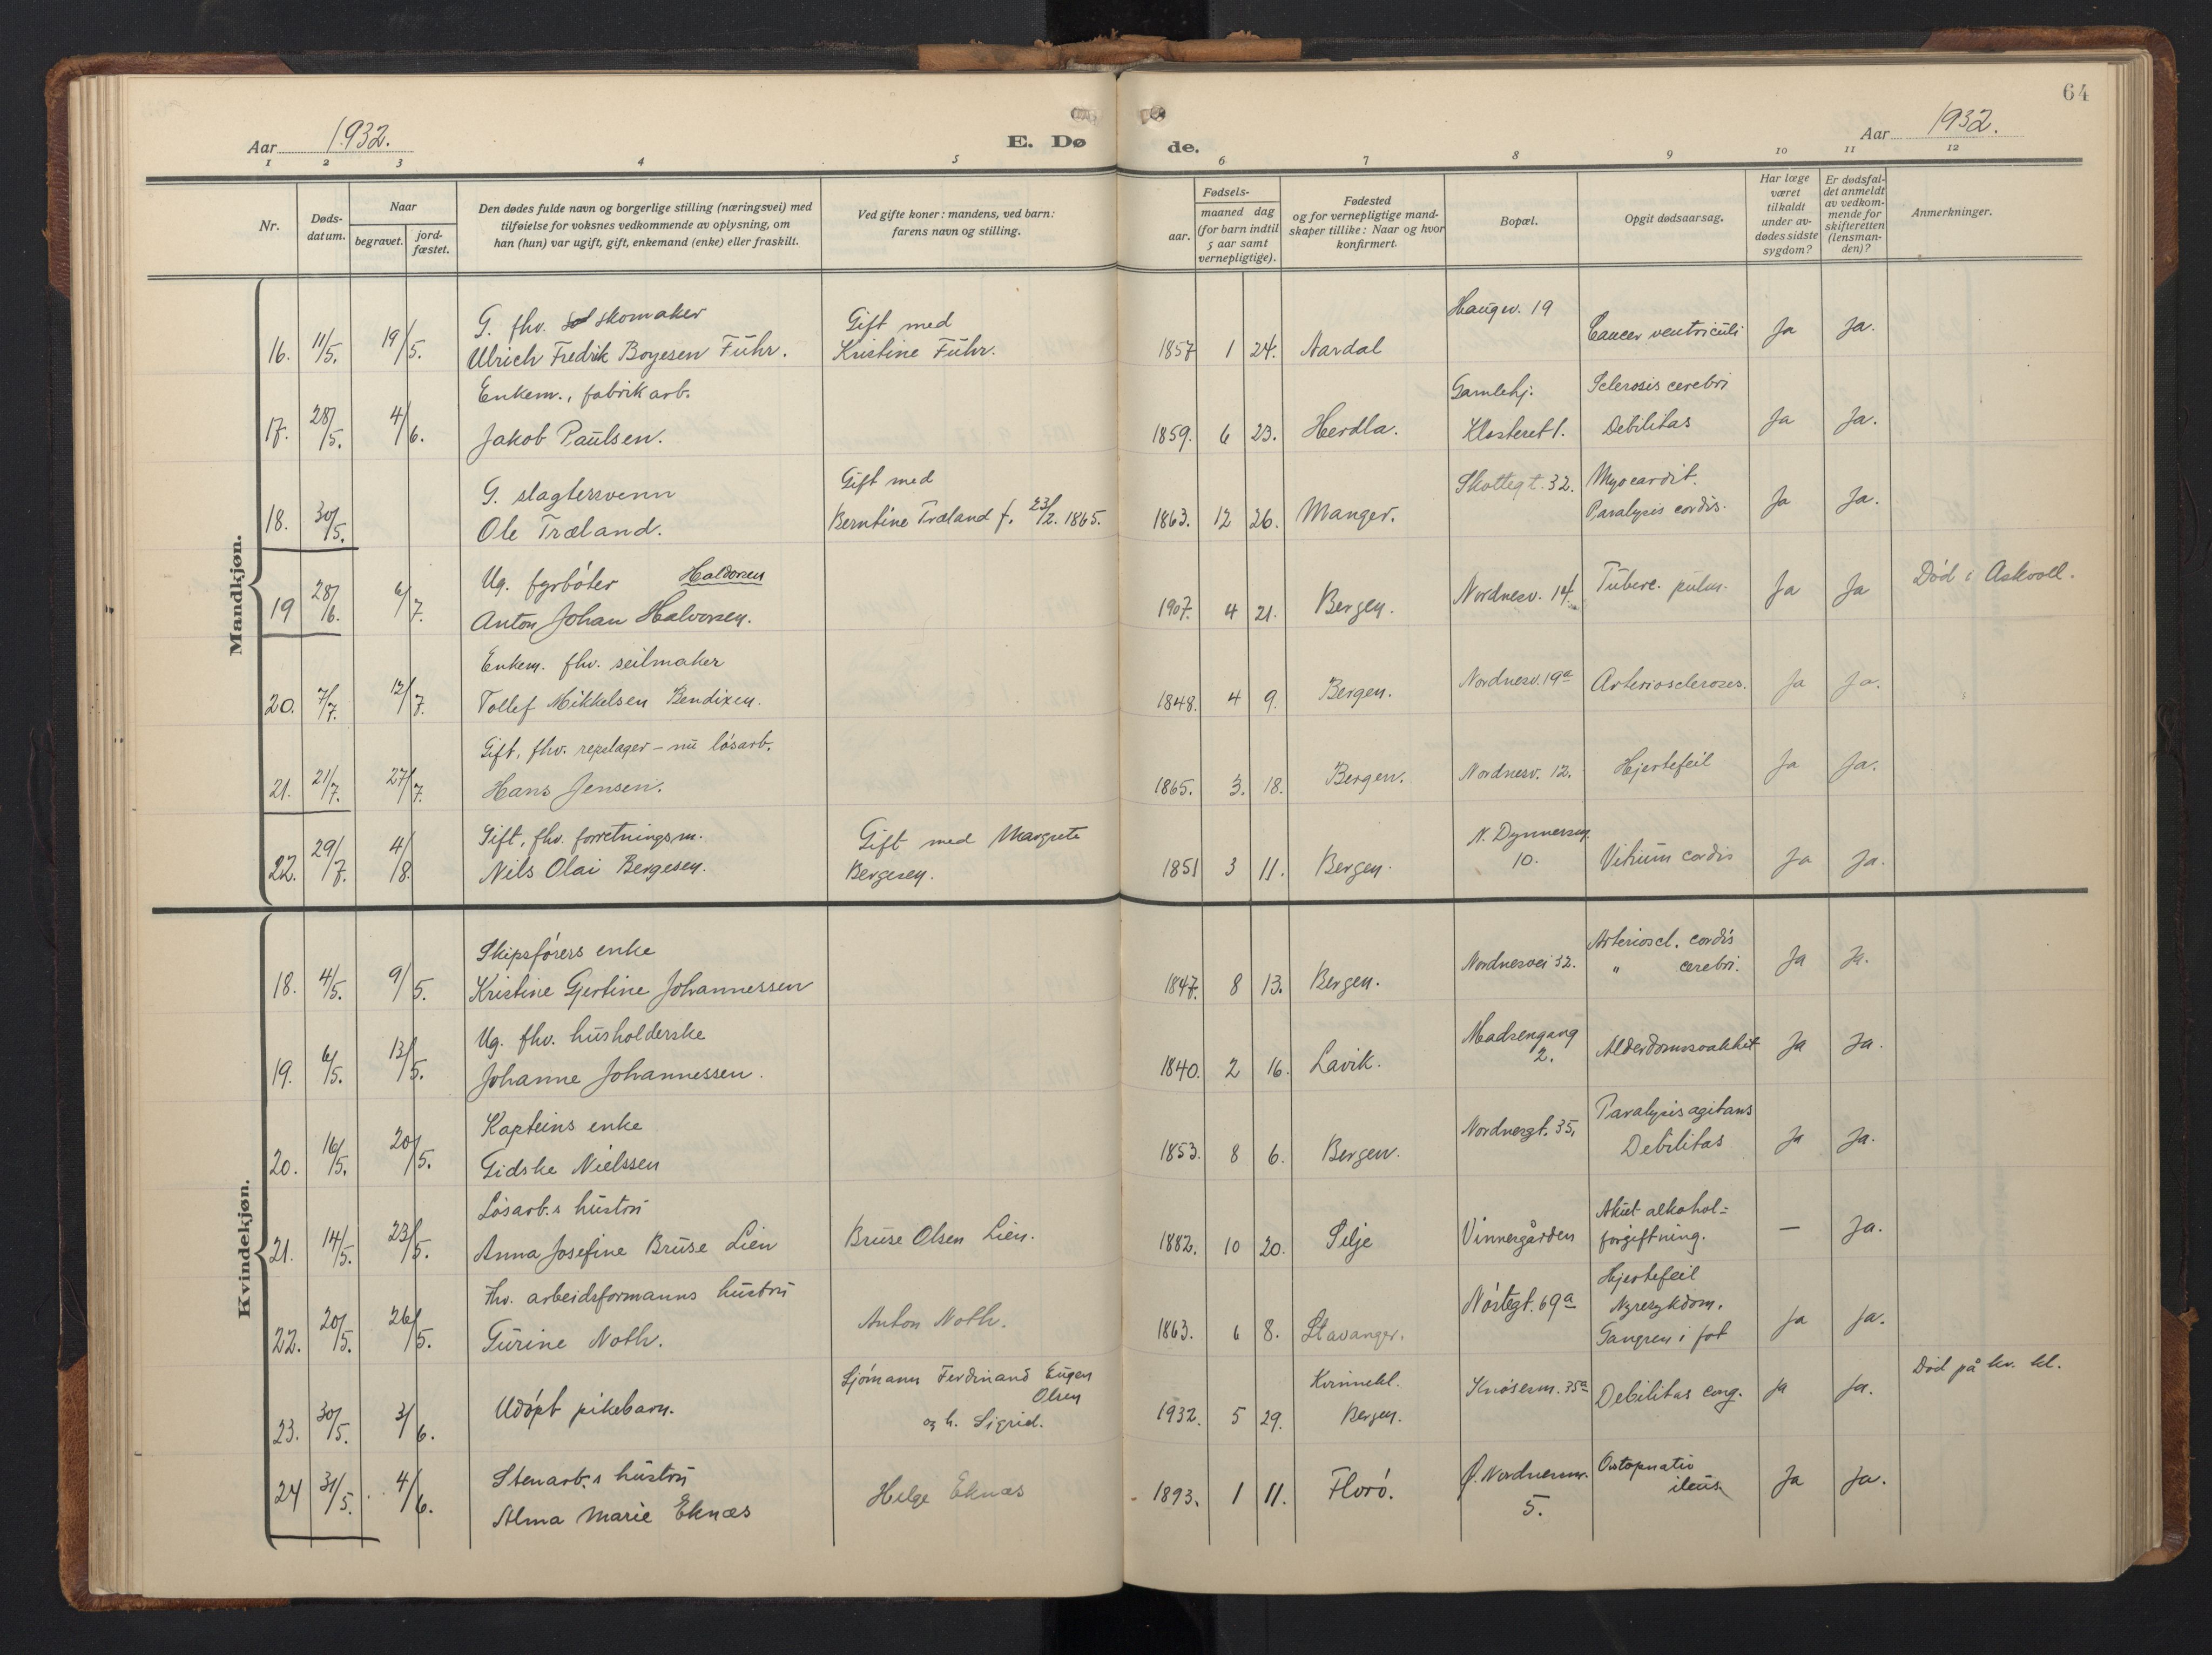 64
Aar 1932.
E. Dø
de.
Aar 1932.
1 2 3 4 5 6 7 8 9 10 11 12
Nr.
Døds-
datum.
Naar
begravet.
jord-
fæstet.
Den dødes fulde navn og borgerlige stilling (næringsvei) med
tilføielse for voksnes vedkommende av oplysning, om
han (hun) var ugift, gift, enkemand (enke) eller fraskilt.
Ved gifte koner: mandens, ved barn:
farens navn og stilling.
Fødsels-
aar.
maaned dag
(for barn indtil
5 aar samt
vernepligtige).
Fødested
og for vernepligtige mand-
skaper tillike: Naar og hvor
konfirmert.
Bopæl.
Opgit dødsaarsag.
Har læge
været
tilkaldt
under av-
dødes sidste
sygdom?
Er dødsfal-
det anmeldt
av vedkom-
mende for
skifteretten
(lensman-
den)?
Anmerkninger.
Mandkjøn.
G. fhv. skomaker Gift med Haugev. 19
16. 11/5. 19/5. Ulrich Fredrik Boyesen Führ. Kristine Führ. 1857 1 24. Aardal Cancer ventriculi Ja Ja.
Enkem., fabrikarb. Gamlehj. Sclerosis cerebri
17. 28/5. 4/6. Jakob Paulsen. 1859. 6 23. Herdla. Klosteret 1. Debilitas Ja Ja.
G. slagtersvenn Gift med Skottegt. 32. Myocardit.
18. 30/5. Ole Træland. Berntine Træland f. 23/2. 1865. 1863. 12 26. Manger. Paralysis cordis. Ja Ja.
Ug. fyrbøter Haldorsen
19 28/6. 6/7. Anton Johan Halvorsen. 1907. 4 21. Bergen. Nordnesv. 14. Tuberc. pulm. Ja Ja Død i Askvoll.
Enkem. fhv. seilmaker
20. 7/7. 12/7. Tollef Mikkelsen Bendixen. 1848. 4 9. Bergen. Nordnesv. 19a Arterioscleroses. Ja Ja.
Gift, fhv. repslager – nu løsarb.
21. 21/7. 27/7. Hans Jensen. 1865. 3. 18. Bergen. Nordnesv. 12. Hjertefeil Ja Ja.
Gift, fhv. forretningsm. Gift med Margrete N. Dynnersm.
22. 29/7. 4/8. Nils Olai Bergesen. Bergesen. 1851 3 11. Bergen. 10. Vitium cordis Ja Ja.
Kvindekjøn.
Skipsførers enke Arterioscl. cordis
18. 4/5. 9/5. Kristine Gjertine Johannessen 1847. 8 13. Bergen. Nordnesvei 32. " cerebri. Ja Ja.
Ug. fhv. husholderske Madsengang
19. 6/5. 13/5. Johanne Johannessen. 1840. 2 16. Lavik. 2. Alderdomssvakhet Ja Ja.
Kapteins enke Nordnesgt. 35, Paralysis agitans
20. 16/5. 20/5. Gidske Nielssen 1853. 8 6. Bergen. Debilitas Ja Ja.
Løsarb.s hustru Akut alkohol=
21. 14/5. 23/5. Anna Josefine Bruse Lien Bruse Olsen Lien. 1882. 10 20. Selje Vinnergården forgiftning. — Ja.
Fhv. arbeidsformanns hustru Hjertefeil
Nøstegt. 69a Nyresykdom.
22. 20/5. 26/5. Gurine Noth. Anton Noth. 1863. 6 8. Stavanger. Gangren i fot Ja Ja.
Sjømann Ferdinand Eugen Kvinnekl. Død på kv. kl.
Olsen
23. 30/5. 3/6. Udøpt pikebarn. og h. Sigrid. 1932. 5 29. Bergen. Knøsesm. 35a Debilitas cong. Ja Ja.
Stenarb.s hustru
24 31/5. 4/6. Alma Marie Eknæs Helge Eknæs 1893. 1 11. Florø. Ø. Nordnesm. 5. ileus Ja Ja.